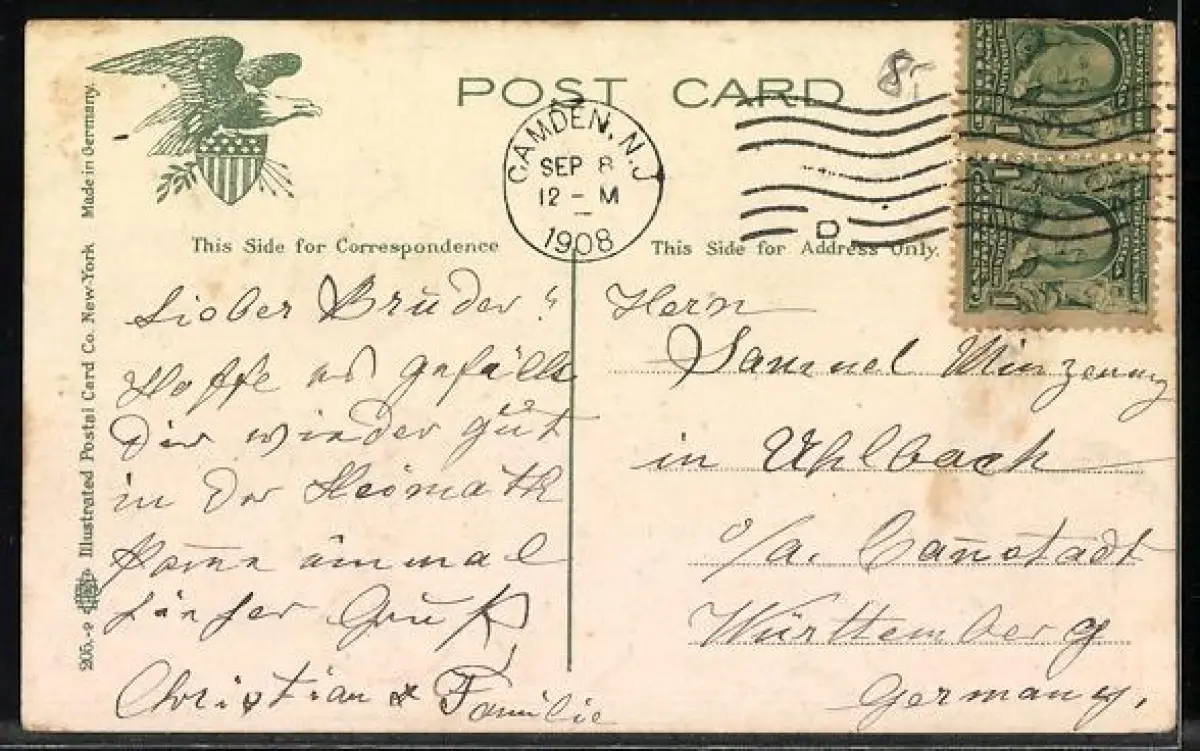 POST CARD
8,-
CAMDEN, N.J.
SEP 8
12 - M
1908
D
This Side for Correspondence
This Side for Address Only.
205.-9 Illustrated Postal Card Co. New-York Made in Germany.
Lieber Bruder!
Hoffe es gefällt
Dir wieder gut
in der Heimath
Kome einmal
Gruß
Christian & Familie
Herrn
Samuel
in Uhlbach
o/a. Canstadt
Württemberg
Germany.